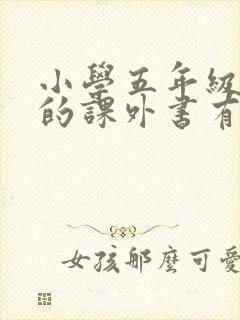 小學五年級
的課外書有
女孩那麼可愛